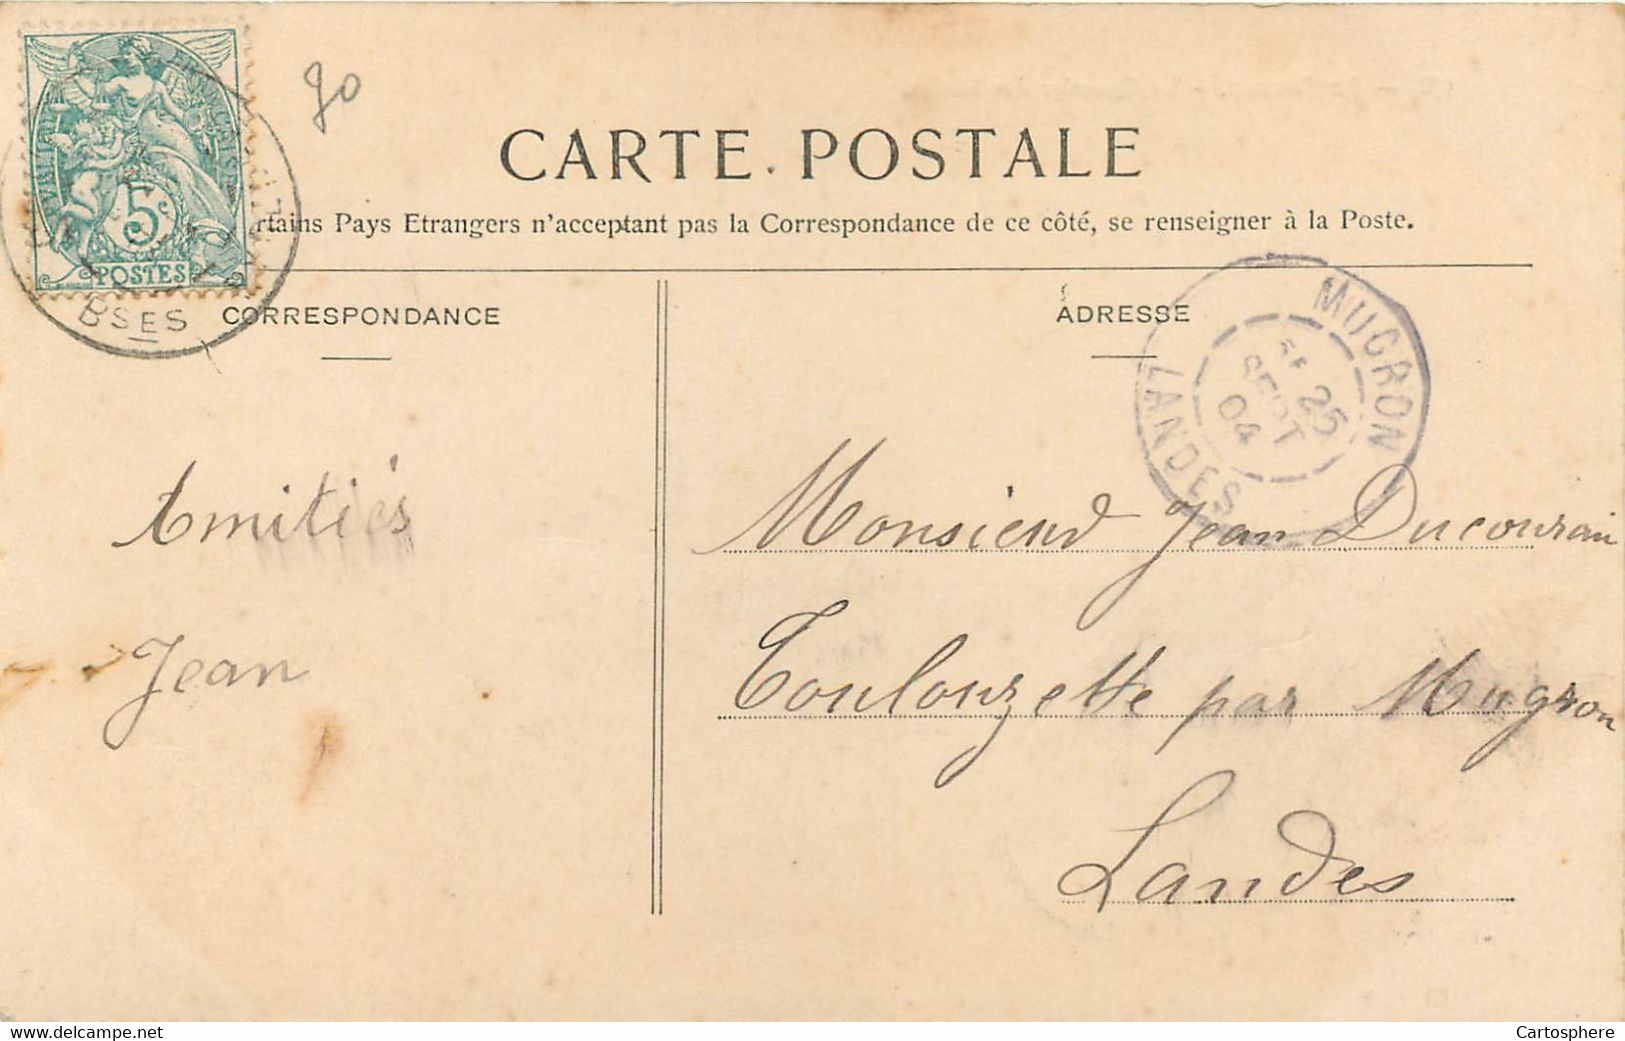 90
CARTE POSTALE
rtains Pays Etrangers n'acceptant pas la Correspondance de ce côté, se renseigner à la Poste.
5c
POSTES
BSES
CORRESPONDANCE
ADRESSE
MUGRON
25
SEPT
04
LANDES
Amitiés
Jean
Monsieur Jean Ducournau
Toulouzette par Mugron
Landes
www.delcampe.net
Cartosphere